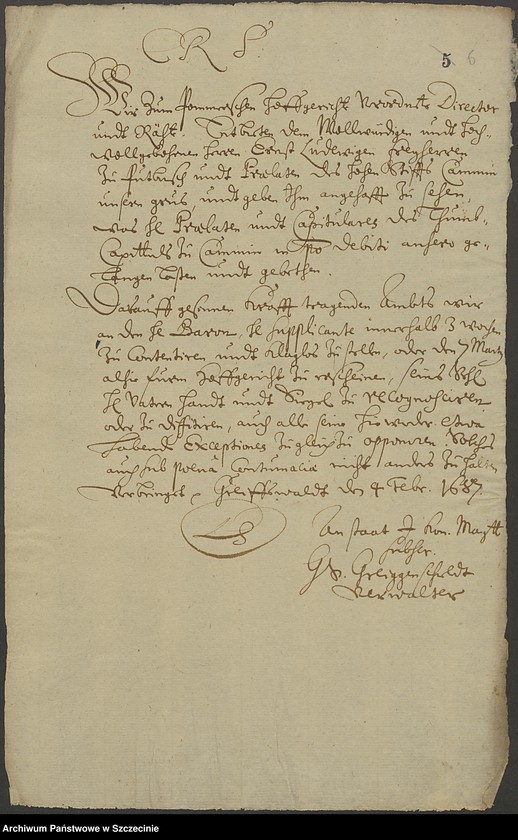 R S.
5 6
Wir zum Pommerschen Hoffgericht Verordnete Director
undt Räht. Entbieten dem Wollwürdigen undt Hoch-
wollgebohrnen Herren Ernst Ludwigen Freyherren
zu Putbusch undt Prælaten des hohen Stiffts Cammin
unsern grus, undt geben Ihm angehefft zu sehen,
was H Prælaten undt Capitulares des Thumb-
Capittuls zu Cammin in po debiti ansero ge-
langen lassen undt gebethen.
Darauff gesinnen krafft tragenden Ambts wir
an den H Baron, H Supplicante innerhalb 3 wochen
zu Contentiren undt klaglos zu stellen, oder den 7 Martij
alhie fürm Hoffgericht zu erscheinen, seines Sehl
H Vatern Handt undt Siegel zu recognosciren
oder zu diffitiren, auch alle seine hierwieder etwa
habende Exceptiones zugleich zu opponiren. Solches
auch sub pœna Contumaciæ nicht anders zu halten
Greiffswaldt den 4 Febr. 1637.
LS
An staat Kon. Maytt
Verwalter
Archiwum Państwowe w Szczecinie